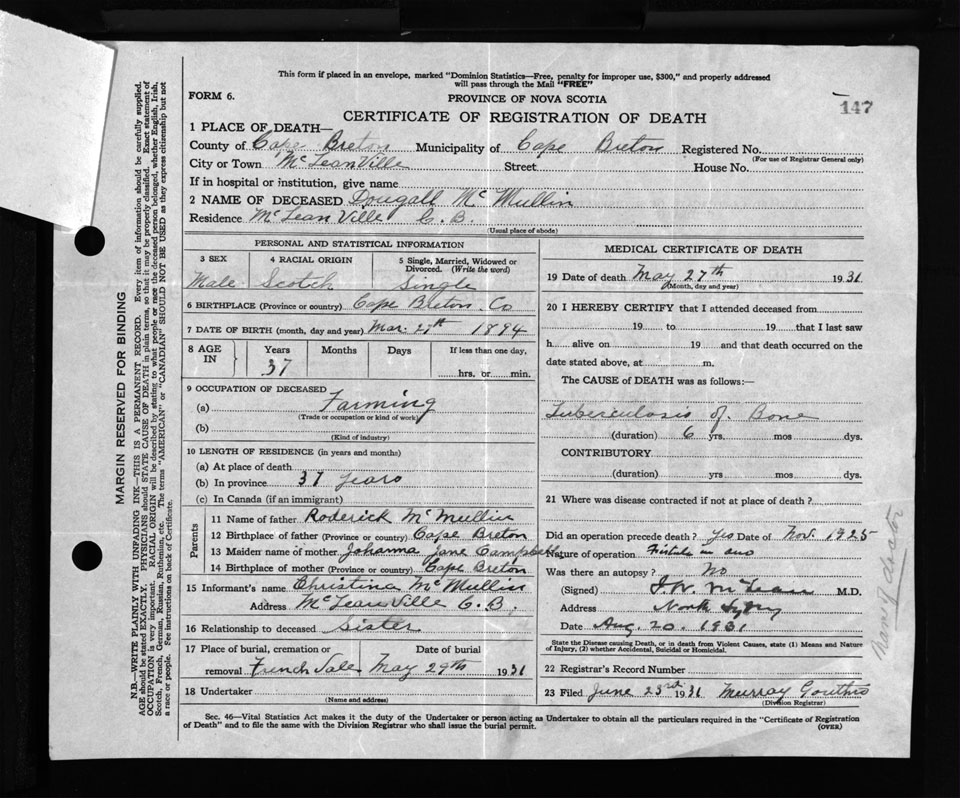 This form if placed in an envelope, marked "Dominion Statistics—Free, penalty for improper use, $300," and properly addressed
will pass through the Mail "FREE"
FORM 6.
PROVINCE OF NOVA SCOTIA
147
CERTIFICATE OF REGISTRATION OF DEATH
1 PLACE OF DEATH—
County of Cape Breton Municipality of Cape Breton Registered No.
(For use of Registrar General only)
City or Town McLeanVille Street House No.
If in hospital or institution, give name
2 NAME OF DECEASED Dougall McMullin
Residence McLeanVille C.B.
(Usual place of abode)
PERSONAL AND STATISTICAL INFORMATION
3 SEX 4 RACIAL ORIGIN 5 Single, Married, Widowed or Divorced. (Write the word)
Male Scotch Single
6 BIRTHPLACE (Province or country) Cape Breton Co
7 DATE OF BIRTH (month, day and year) Mar. 27th 1894
8 AGE IN Years Months Days If less than one day,
37 hrs. or min.
9 OCCUPATION OF DECEASED
(a) Farming
(Trade or occupation or kind of work)
(b)
(Kind of industry)
10 LENGTH OF RESIDENCE (in years and months)
(a) At place of death
(b) In province 37 years
(c) In Canada (if an immigrant)
Parents
11 Name of father Roderick McMullin
12 Birthplace of father (Province or country) Cape Breton
13 Maiden name of mother Johanna Jane Campbell
14 Birthplace of mother (Province or country) Cape Breton
15 Informant's name Christina McMullin
Address McLeanVille C.B.
16 Relationship to deceased Sister
17 Place of burial, cremation or removal Date of burial
French Vale May 29th 1931
18 Undertaker
(Name and address)
MEDICAL CERTIFICATE OF DEATH
19 Date of death May 27th 1931
(Month, day and year)
20 I HEREBY CERTIFY that I attended deceased from
19 to 19 that I last saw
h alive on 19 and that death occurred on the
date stated above, at m.
The CAUSE of DEATH was as follows:—
Tuberculosis of Bone
(duration) 6 yrs. mos dys.
CONTRIBUTORY
(duration) yrs mos dys.
21 Where was disease contracted if not at place of death?
Did an operation precede death? Yes Date of Nov. 1925
Nature of operation Fistula in ano
Was there an autopsy? No
(Signed) McLean M.D.
Address North Sydney
Date Aug. 20. 1931
State the Disease causing Death, or in death from Violent Causes, state (1) Means and Nature
of Injury, (2) whether Accidental, Suicidal or Homicidal.
22 Registrar's Record Number
23 Filed June 23rd 1931 Murray
(Division Registrar)
Sec. 46—Vital Statistics Act makes it the duty of the Undertaker or person acting as Undertaker to obtain all the particulars required in the "Certificate of Registration
of Death" and to file the same with the Division Registrar who shall issue the burial permit.
(OVER)
MARGIN RESERVED FOR BINDING
N.B.—WRITE PLAINLY WITH UNFADING INK—THIS IS A PERMANENT RECORD. Every item of information should be carefully supplied.
AGE should be stated EXACTLY. PHYSICIANS should STATE CAUSE OF DEATH in plain terms, so that it may be properly classified. Exact statement of
OCCUPATION is very important. RACIAL ORIGIN will be described by stating to what people or race the deceased person belonged, whether English, Irish,
Scotch, French, German, Russian, Ruthenian, etc. The terms "AMERICAN" or "CANADIAN" SHOULD NOT BE USED as they express citizenship but not
a race or people. See instructions on back of Certificate.